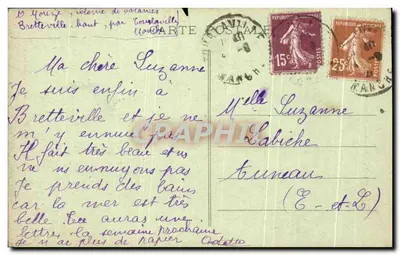 colonie de vacances
Bretteville haut, par Tourlaville
Manche
CARTE POSTALE
Ma chère Suzanne
Je suis enfin à
Bretteville et je ne
m'y ennuie pas
Il fait très beau et nous
ne ns ennuyons pas
Je prends des bains
car la mer est très
belle. Tu auras une
lettre la semaine prochaine
je n'ai plus de papier Odette
TOURLAVILLE
MANCHE
15c
25c
POSTES
Melle Suzanne
Labiche
Auneau
(E-et-L)
CARTORUM